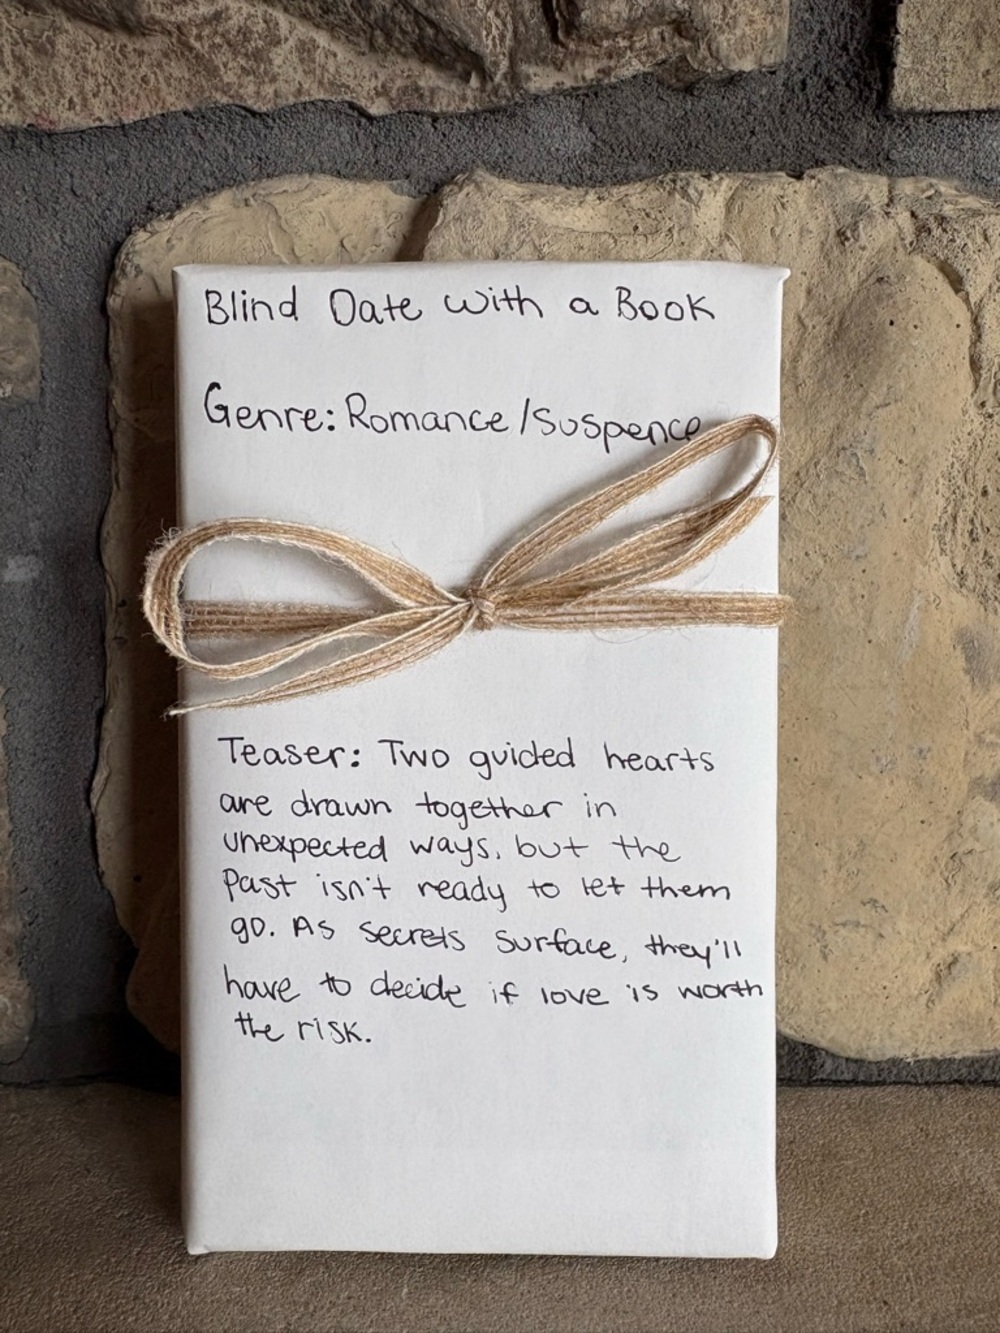 Blind Date with a Book
Genre: Romance/Suspence
Teaser: Two guided hearts
are drawn together in
unexpected ways, but the
past isn't ready to let them
go. As secrets surface, they'll
have to decide if love is worth
the risk.